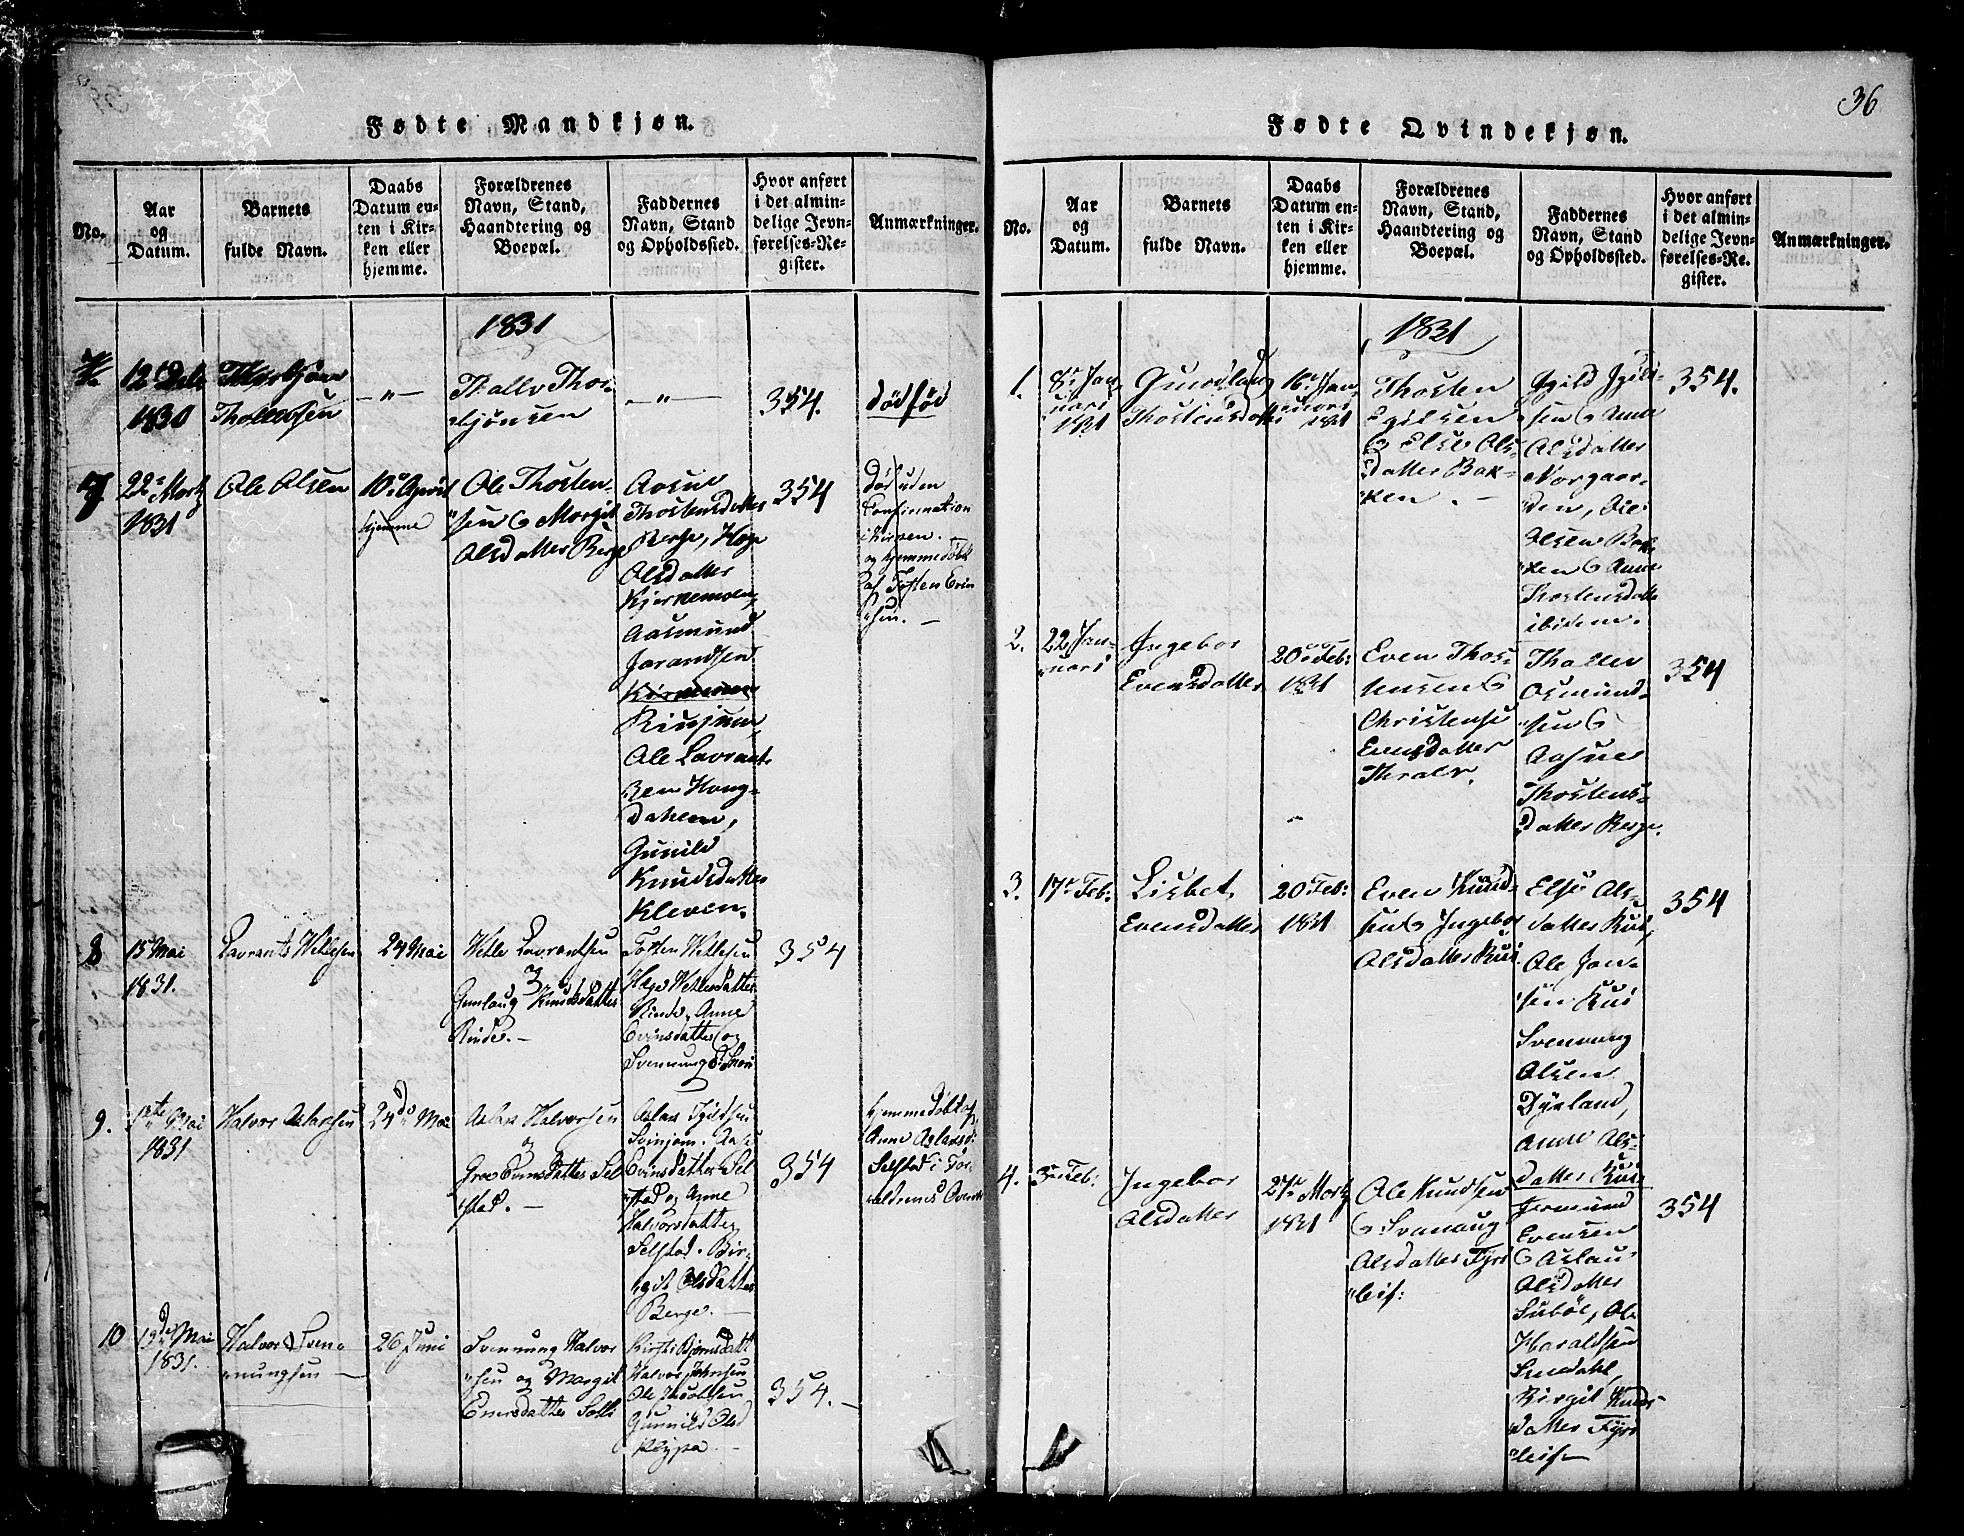 36
Fødte Mandkjøn.
No.
Aar
og
Datum.
Barnets
fulde Navn.
Daabs
Datum en-
ten i Kir-
ken eller
hjemme.
Forældrenes
Navn, Stand,
Haandtering og
Boepæl.
Faddernes
Navn, Stand
og Opholdssted.
Hvor anført
i det almin-
delige Jevn-
førelses-Re-
gister.
Anmærkninger.
1831
12
1830
Tholleifsen
— " —
Thallv Thor-
bjønsen
— " —
354.
dødfød
7
22 Martz
1831
Ole Olsen
10 April
hjemme
Ole Thosten-
sen & Margit
Olsdatter Berge
Aasne
Thostensdatter
Berge, Hæge
Olsdatter
Kjernemoen,
Aasmund
Jorandsen
Rinjum
Ole Lavrant-
sen Haug-
dalen,
Gunild
Knudsdatter
Kleven.
354
Død uden
Confirmation
i Kirken. —
og hjemmedøbt
af Tosten Evin
"sen. —
8
15 Mai
1831.
Lavrants Vetlesen
24 Mai
Vetle Lavrantsen
og
Gunlaug Knudsdatter
Rinde. —
Tosten Vetlesen
Hæge Vetlesdatter
Rinde, Anne
Evinsdatter og
Svennung
354
9.
Mai
1831
Halvor Aslaksen
24 Mai
Aslak Halvorsen
og
Groe Evinsdatter Sel
"stad. —
Aslak Igildsen
Svinjom. Aase
Evinsdatter Sel
"stad og Anne
Halvorsdatter
Selstad. Bir-
"git Olsdatter
Berge. —
354
hjemmedøbt af
Anne Aslaksd:
Selstad i For-
"ældrenes
10
19 Mai
1831.
Halvor Sven-
"nungsen —
26 Juni
Svennung Halvor
"sen og Margit
Evensdatter
Kirsti Bjørnsdatt
Halvor Johnsen
Ole Jacobsen
Gunnild Olsd
Klyppa —
354. —
Fødte Qvindekjøn.
No.
Aar
og
Datum.
Barnets
fulde Navn.
Daabs
Datum en-
ten i Kir-
ken eller
hjemme.
Forældrenes
Navn, Stand,
Haandtering og
Boepæl.
Faddernes
Navn, Stand
og Opholdssted.
Hvor anført
i det almin-
delige Jevn-
førelses-Re-
gister.
Anmærkninger.
1831
1.
8 Jan-
uari
1831
Gundlaug
Thostensdatter
16 Jan-
uari
1831
Thosten
Egilsen
& Else Ols-
datter Bak-
"ken. —
Igild Igild-
sen & Anne
Olsdatter
Norgaar-
den, Ole
Olsen Bak-
"ken & Anne
Thostensdatter
ibidem.
354.
2.
22 Jan-
uari
Ingebor
Evensdatter
20 Feb:
1831
Even Thos-
tensen &
Christense
Evensdatter
Thralv.
Thallev
Osmund-
"sen &
Aasne
Thostens-
datter Berge.
354
3.
17 Feb:
Lisbet
Evensdatter
20 Feb:
1831
Even Knud-
sen & Ingebor
Olsdatter Rui
Else Ols-
datter Rui,
Ole Jon-
sen Rui
Svennung
Olsen
Dyrland,
Anne Ols-
datter Rui
354
4.
Feb:
Ingebor
Olsdatter
27 Martz
1831
Ole Knudsen
& Svanaug
Olsdatter Fyri
"leif:
Jermund
Evensen
& Aslau
Olsdatter
Lubøl, Ole
Haraldsen
Lindahl,
Birgit Knuds-
datter Fyri
"leif —
354